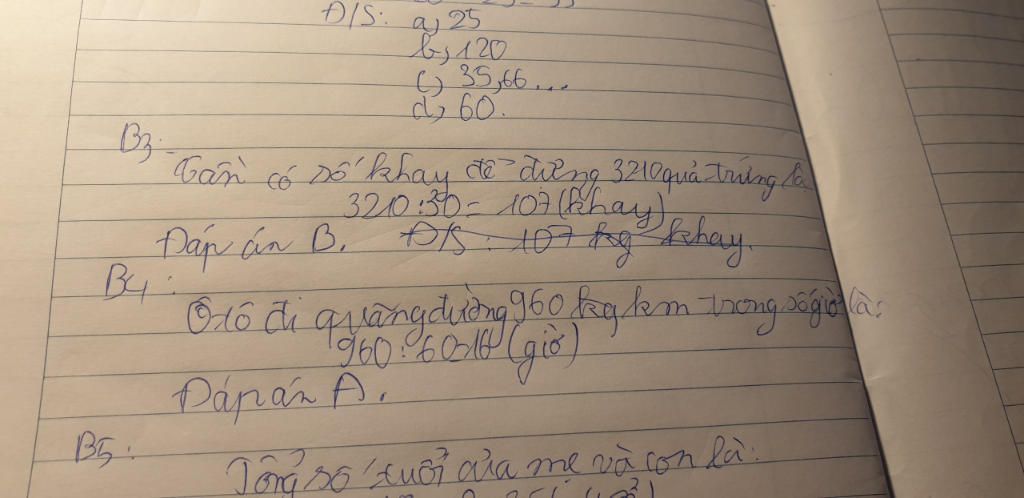 Đ/S: a, 25
b, 120
c) 35,66...
d, 60.
B3:
Cần có số khay để đựng 3210 quả trứng là
3210:30 = 107 (khay)
Đáp án B. Đ/S: 107 kg khay.
B4:
Ô tô đi quãng đường 960 kg km trong số giờ là:
960:60=16 (giờ)
Đáp án A.
B5:
Tổng số tuổi của mẹ và con là: